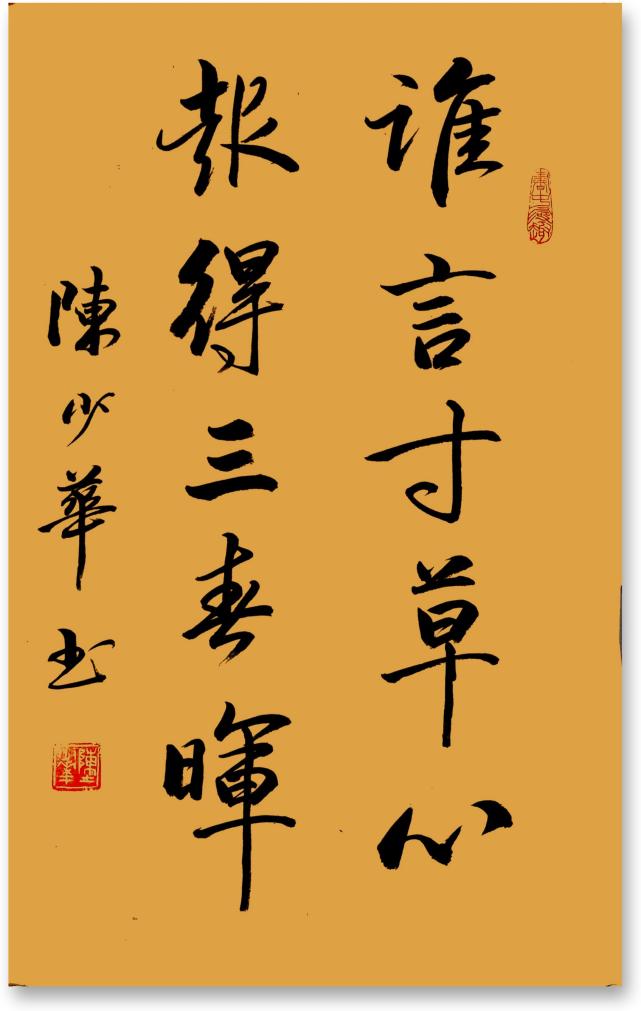 谁言寸草心
報得三春暉
陳少華书